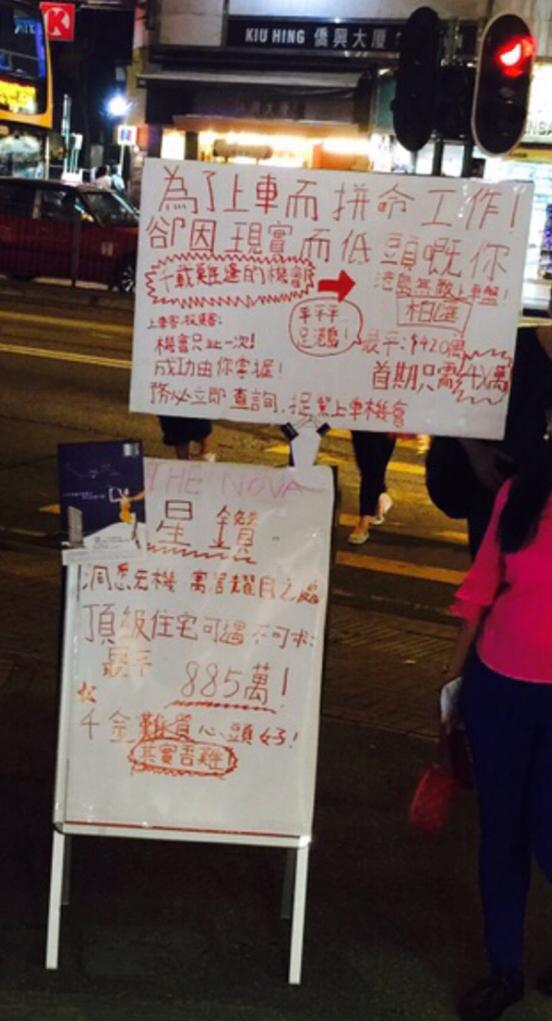 KIU HING 僑興大廈
為了上車而拼命工作!
卻因現實而低頭嘅你
千載難逢的機會
港島無敵上車盤!
柏匯
平平平
只港島!
上車客,投資客:
機會只此一次!
最平:$420萬
成功由你掌握!
首期只需4X萬
務必立即查詢,捉緊上車機會
THE NOVA
星鑽
洞悉玄機 寓言耀目之處
頂級住宅可遇不可求:
最平
885萬!
千金難買心頭好!
其實吾難!